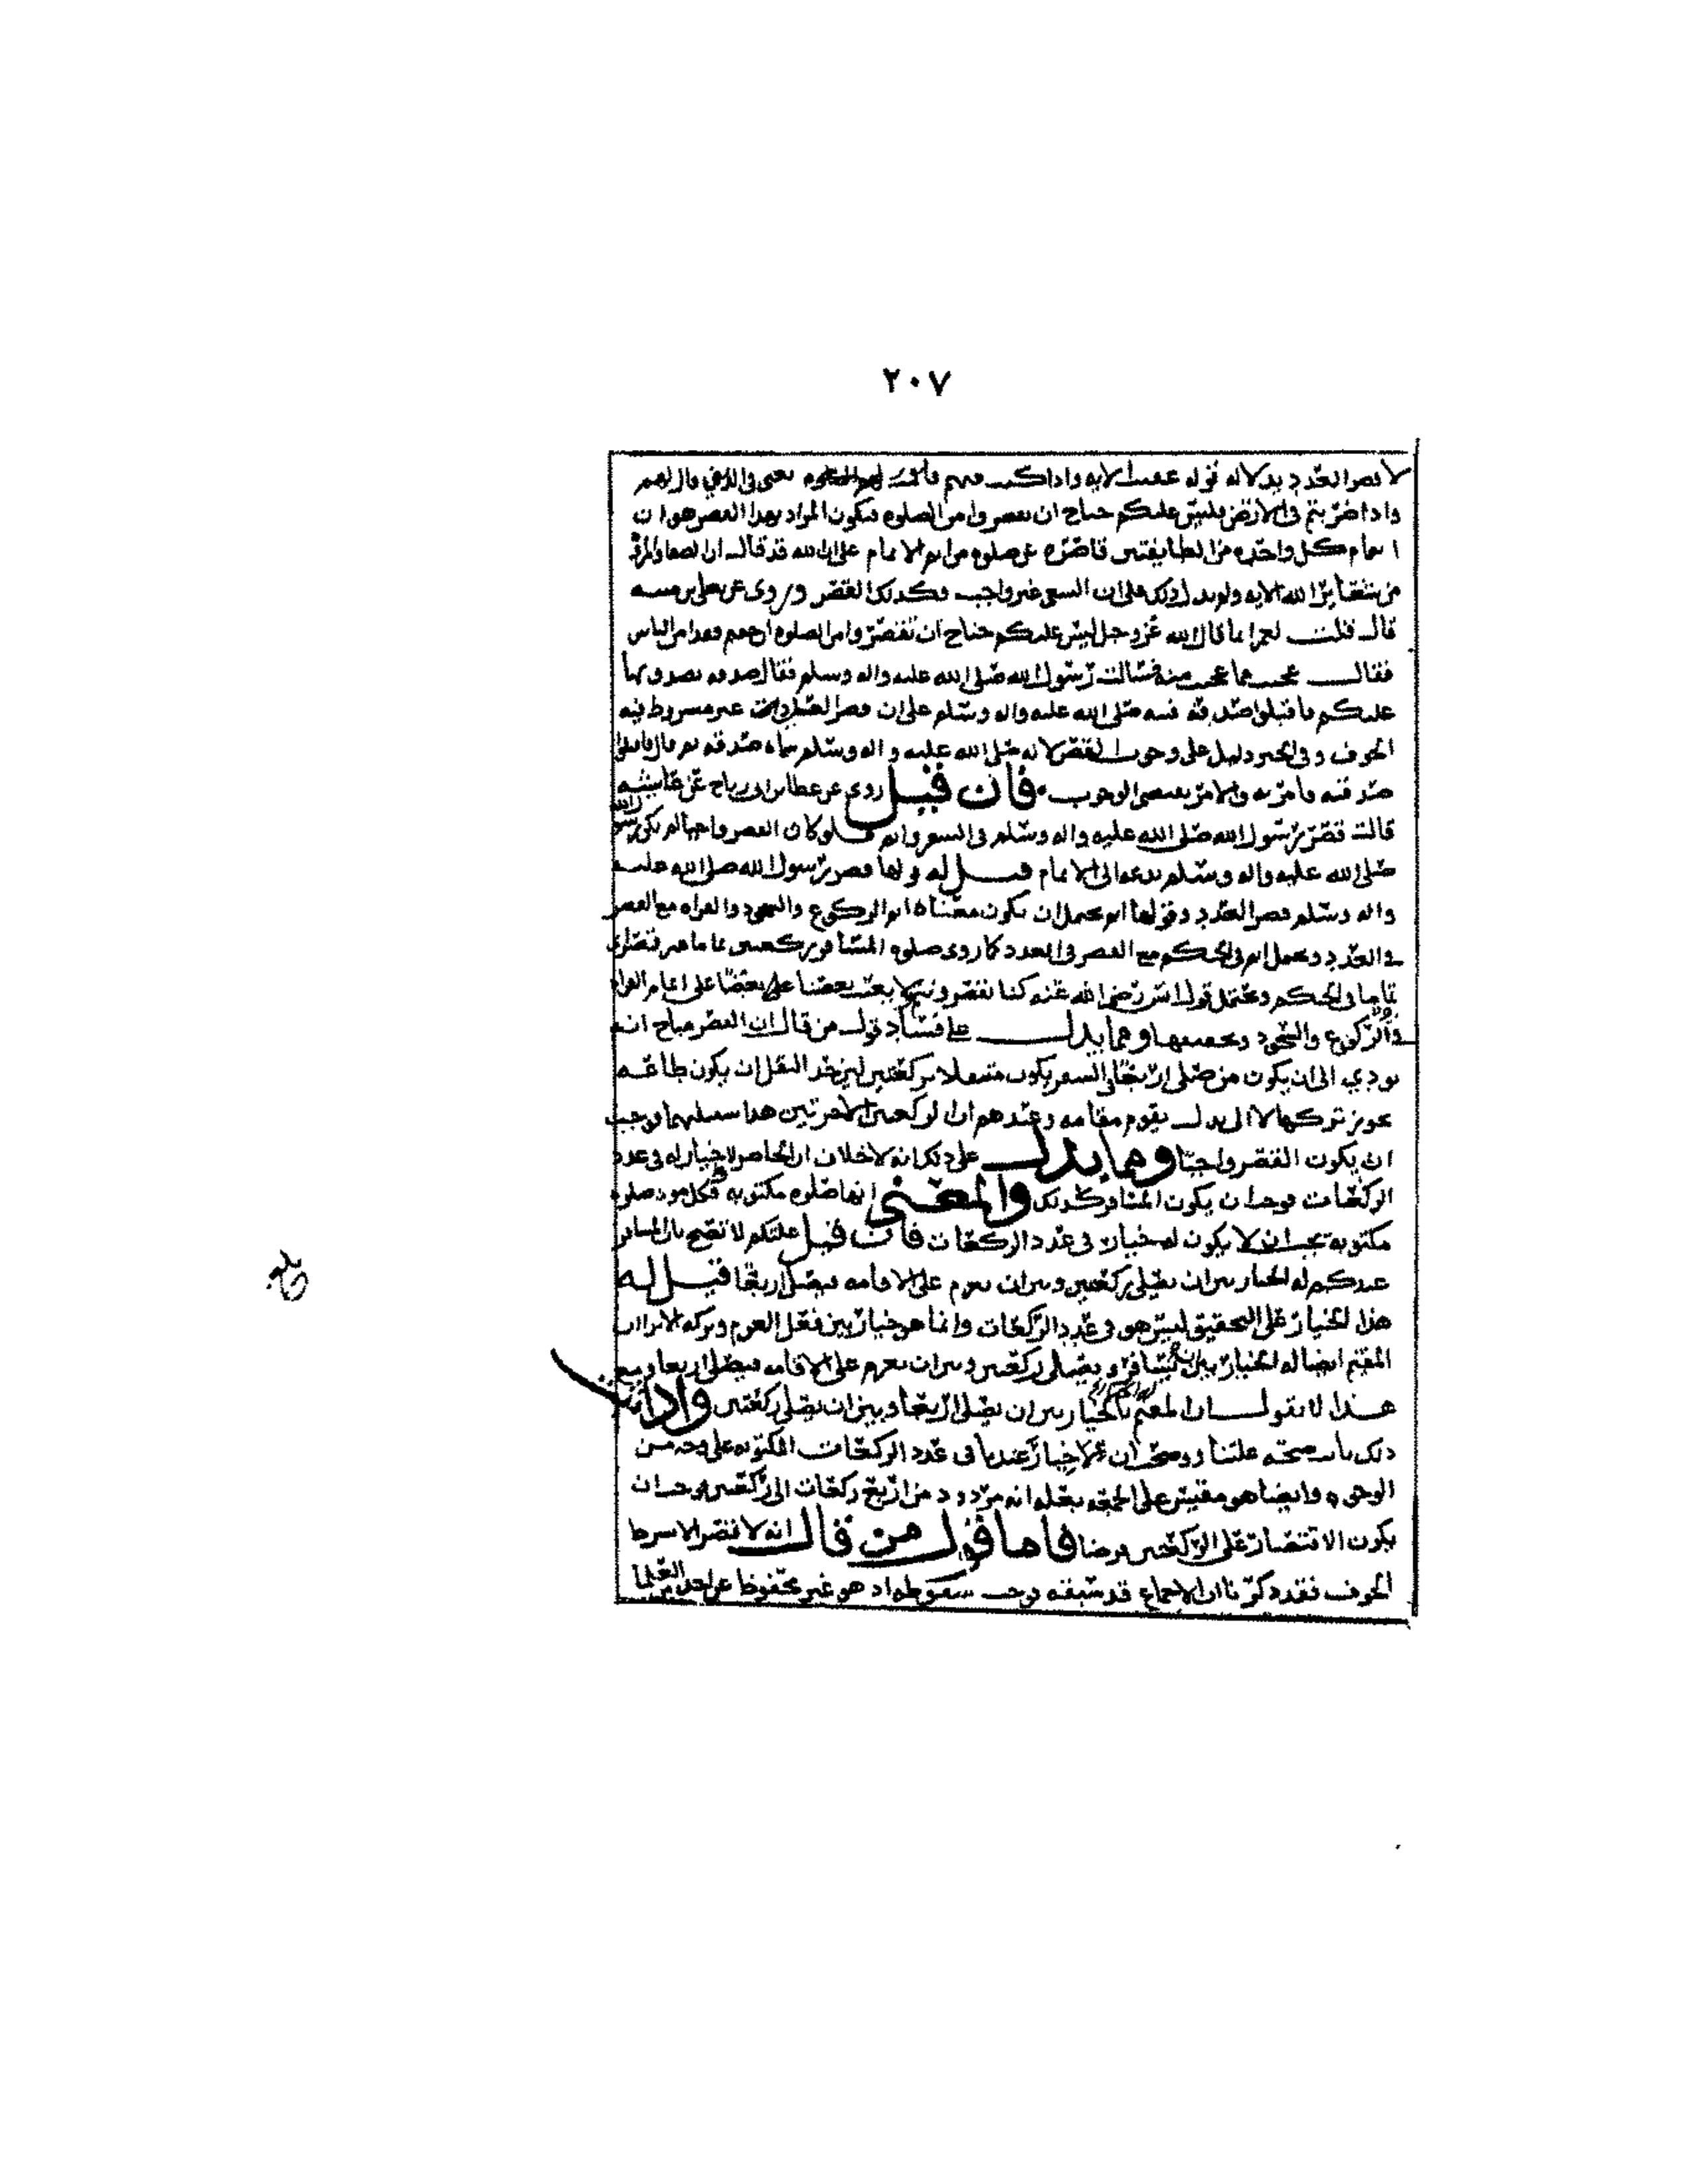 ٢٠٧
لا قصر العدد بدلالة قوله عقيب الاية واذا كنت فيهم فاقمت لهم الصلوه يعني في الذي قال لهم
واذا ضربتم في الارض فليس عليكم جناح ان تقصروا من الصلوه فيكون المراد بهذا القصر هو ان
ائتمام كل واحده من الطايفتين قاصره عن صلوه من ائتم الامام على ان الله قد قال ان الصفا والمروة
من شعاير الله الايه ولم يدل ذلك على ان السعي غير واجب فكذلك القصر وروى عن يعلى بن منيه
قال قلت لعمر انما قال الله عز وجل ليس عليكم جناح ان تقصروا من الصلوه ان خفتم وقد امن الناس
فقال عجبت مما عجبت منه فسالت رسول الله صلى الله عليه واله وسلم فقال صدقه تصدق بها
عليكم فاقبلوا صدقته فنبه صلى الله عليه واله وسلم على ان قصر الصلوات غير مشروط فيه
الخوف وفي الخبر دليل على وجوب القصر لانه صلى الله عليه واله وسلم سماه صدقه ثم قال فاقبلوا
صدقته فامر به والامر يقتضي الوجوب فان قيل روى عن عطا بن ابي رباح عن عايشه
قالت قصر رسول الله صلى الله عليه واله وسلم في السفر واتم فلو كان القصر واجبا لم يكن رسول الله
صلى الله عليه واله وسلم يدعه الى الاتمام قيل له قولها قصر رسول الله صلى الله عليه
واله وسلم قصر العدد وقولها اتم يحتمل ان يكون معناه اتم الركوع والسجود والقراه مع القصر
في العدد ويحتمل اتم في الحكم مع القصر في العدد كما روى صلوه المسافر ركعتين تماما غير قصر اي
تماما في الحكم ويحتمل قول انس رضي الله عنه كنا نقصر ونتم لا يعتب بعضنا على بعض على اتمام القراه
والركوع والسجود وتخفيفها ومما يدل على فساد قول من قال ان القصر مباح انه
يودي الى ان يكون من صلى اربعا في السفر يكون متنفلا بركعتين لان حد النفل ان يكون طاعه
يجوز تركها لا الى بدل يقوم مقامه وعندهم ان الركعتين الاخرتين هذا سبيلهما فوجب
ان يكون القصر واجبا ومما يدل على ذلك انه لا خلاف ان الحاضر لا خيار له في عدد
الركعات فوجب ان يكون المسافر كذلك والمعنى انها صلوه مكتوبه فكل مودي صلوه
مكتوبه يجب ان لا يكون له خيار في عدد الركعات فان قيل علتكم لا تصح بان المسافر
عندكم له الخيار بين ان يصلي ركعتين وبين ان يعزم على الاقامه فيصلي اربعا قيل له
هذا الخيار على التحقيق ليس هو في عدد الركعات وانما هو خيار بين فعل العزم وتركه الا ترى ان
المقيم ايضا له الخيار بين ان يسافر ويصلي ركعتين وبين ان يعزم على الاقامه فيصلي اربعا ومع
هذا لا نقول ان المقيم بالخيار بين ان يصلي اربعا وبين ان يصلي ركعتين واذا ثبت
ذلك بانت صحة علتنا ووضح ان لا خيار عندنا في عدد الركعات المكتوبه على وجه من
الوجوه وايضا هو مقيس على الجمعه بعله انه مردود من اربع ركعات الى ركعتين فوجب ان
يكون الاقتصار على الركعتين فرضا فاما قول من قال انه لا قصر الا بشرط
الخوف فقد ذكرنا ان الاجماع قد سبقه فوجب سقوطه اذ هو غير محفوظ عن احد من العلما
بلغ